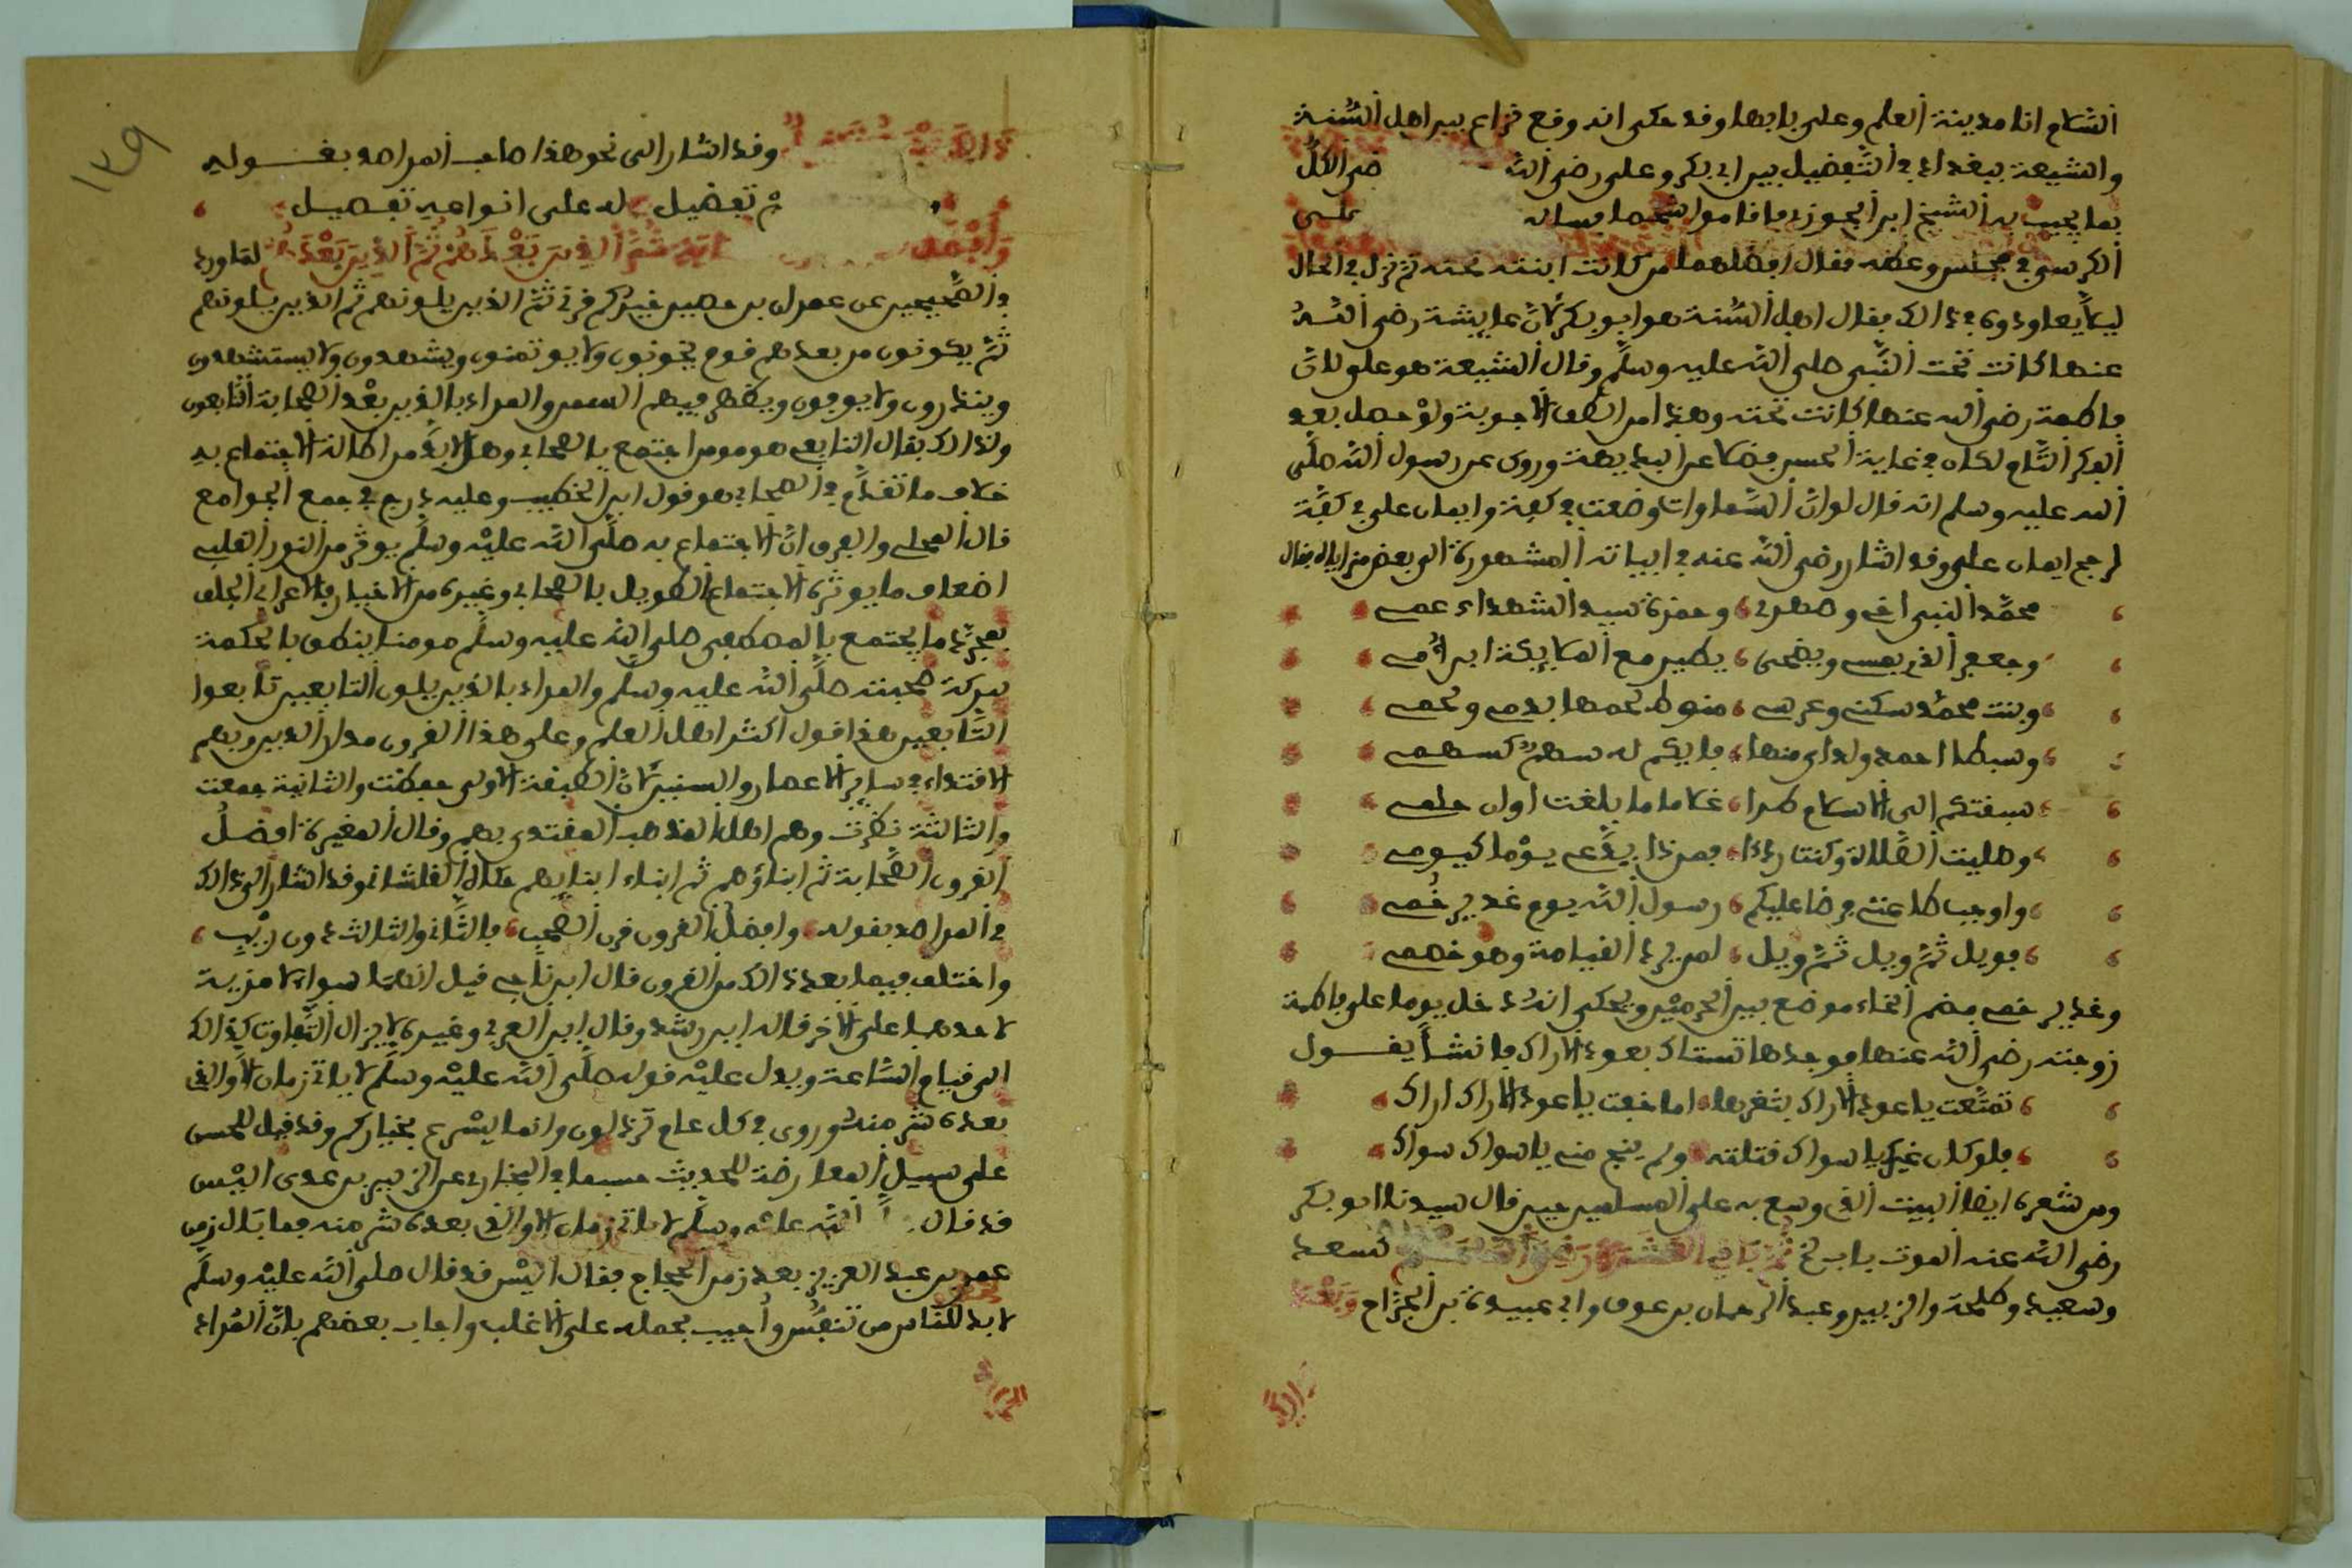 السلام انا مدينة العلم وعلي بابها وقد حكى انه وقع نزاع بين اهل السنة
والشيعة ببغداد في التفضيل بين ابي بكر وعلي رضي الله فرضي الكل
بما يجيب به الشيخ ابن الجوزي فاقاموا شخصا يساله على
الكرسي في مجلس وعظه فقال افضلهما من كانت ابنته تحته ثم نزل في الحال
ليلا يعاودوه في ذالك فقال اهل السنة هو ابو بكر لان عايشة رضي الله
عنها كانت تحت النبي صلى الله عليه وسلم وقال الشيعة هو علي لان
فاطمة رضي الله عنها كانت تحته وهذا من الطف الاجوبة ولو حصل بعد
الفكر التام لكان في غاية الحسن فضلا عن البديهة وروى عمر رسول الله صلى
الله عليه وسلم انه قال لو ان السماوات وضعت في كفة وايمان علي في كفة
لرجح ايمان علي وقد اشار رضي الله عنه في ابياته المشهورة الى بعض مزاياه فقال
محمد النبي اخي وصهري وحمزة سيد الشهداء عمي
وجعفر الذي يمسي ويضحى يطير مع الملايكة ابن امي
وبنت محمد سكني وعرسي منوط لحمها بدمي ولحمي
وسبطا احمد ولداي منها فايكم له سهم كسهمي
سبقتكم الى الاسلام طرا غلاما ما بلغت اوان حلمي
وصليت الصلاة وكنت ردءا فمن ذا يدعي يوما كيومي
واوجب طاعتي فرضا عليكم رسول الله يوم غدير خم
فويل ثم ويل ثم ويل لمن يرد القيامة وهو خصمي
وغدير خم بضم الخاء موضع بين الحرمين ويحكى انه دخل يوما على فاطمة
زوجته رضي الله عنها فوجدها تستاك بعود الاراك فانشا يقول
تمتعت يا عود الاراك بثغرها اما خفت يا عود الاراك اراك
فلو كان غيرك يا سواك قتلته ولم ينج مني يا سواك سواك
ومن شعره ايضا البيت الذي وسع به على المسلمين حين قال سيدنا ابو بكر
رضي الله عنه الموت باب الخ ثم باقي العشرة رضي الله عنهم كسعد
وسعيد وطلحة والزبير وعبد الرحمان بن عوف وابي عبيدة بن الجراح
وقد اشار الى نحو هذا صاحب المراصد بقوليه
تفضيل له على انواعه تفصيل
ثم الذين بعدهم ثم الذين بعد لما ورد
في الصحيحين عن عمران بن حصين خيركم قرني ثم الذين يلونهم ثم الذين يلونهم
ثم يكونون من بعدهم قوم يخونون ولا يوتمنون ويشهدون ولا يستشهدون
وينذرون ولا يوفون ويظهر فيهم السمن والمراد بالذين بعد الصحابة التابعون
ولذالك يقال التابعي هو مومن اجتمع بالصحابي وهل لا بد من اطالة الاجتماع به
خلاف ما تقدم في الصحابي هو قول ابن الخطيب وعليه درج في جمع الجوامع
قال المحلي والفرق ان الاجتماع به صلى الله عليه وسلم يوثر من النور القلبي
اضعاف ما يوثره الاجتماع الطويل بالصحابي وغيره من الاخيار فالاعرابي الجلف
بمجرد ما يجتمع بالمصطفى صلى الله عليه وسلم مومنا ينطق بالحكمة
ببركة صحبته صلى الله عليه وسلم والمراد بالذين يلون التابعين تابعوا
التابعين هذا قول اكثر اهل العلم وعلى هذا القرون مدار الدين وبهم
الاقتداء في ساير الاعصار والسنين لان الطبقة الاولى حفظت والثانية جمعت
والثالثة نظرت وهم اهل المذهب المقتدى بهم وقال المغيرة افضل
القرون الصحابة ثم ابناؤهم ثم ابناء ابنايهم حكاه القلشاني وقد اشار الى ذالك
في المراصد بقوله وافضل القرون قرن الصحب فالثاني والثالث دون ريب
واختلف فيما بعد ذالك من القرون قال ابن ناجي قيل انها سواء لا مزية
لاحدها على الاخر قاله ابن رشد وقال ابن العربي وغيره لا يزال التفاوت كذالك
الى قيام الساعة ويدل عليه قوله صلى الله عليه وسلم لا ياتي زمان الا والذي
بعده شر منه وروي في كل عام ترذلون وانما يسرع بخياركم وقد قيل للحسن
على سبيل المعارضة للحديث حسبما في البخاري عن الزبير بن عدي اليس
قد قال الله عليه وسلم لا ياتي زمان الا والذي بعده شر منه فما بال زمن
عمر بن عبد العزيز بعد زمن الحجاج فقال اليس قد قال صلى الله عليه وسلم
لا بد للناس من تنفيس واجيب بحمله على الاغلب واجاب بعضهم بان المراد